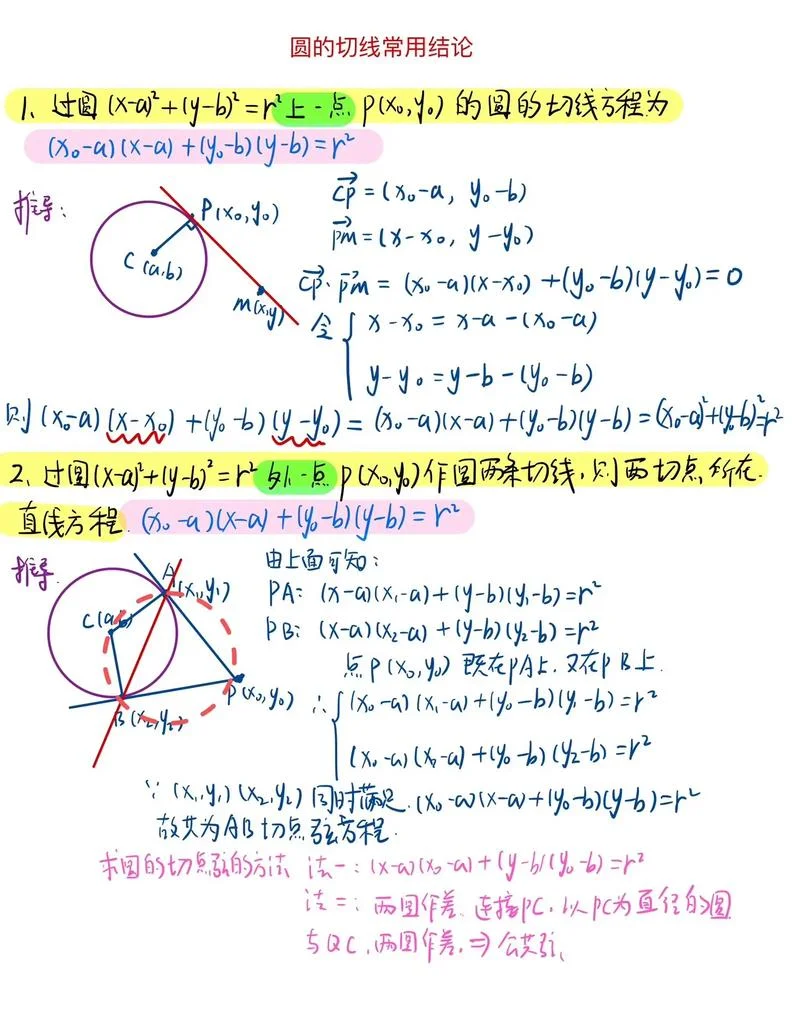 圆的切线常用结论
1、过圆(x-a)²+(y-b)²=r²上一点P(x₀,y₀)的圆的切线方程为
(x₀-a)(x-a)+(y₀-b)(y-b)=r²
推导:
P(x₀,y₀)
C(a,b)
M(x,y)
\overrightarrow{CP}=(x₀-a, y₀-b)
\overrightarrow{PM}=(x-x₀, y-y₀)
\overrightarrow{CP}·\overrightarrow{PM}=(x₀-a)(x-x₀)+(y₀-b)(y-y₀)=0
令{x-x₀=x-a-(x₀-a)
y-y₀=y-b-(y₀-b)
则(x₀-a)(x-x₀)+(y₀-b)(y-y₀)=(x₀-a)(x-a)+(y₀-b)(y-b)=(x₀-a)²+(y₀-b)²=r²
2、过圆(x-a)²+(y-b)²=r²外一点P(x₀,y₀)作圆两条切线,则两切点所在
直线方程(x₀-a)(x-a)+(y₀-b)(y-b)=r²
推导.
A(x₁,y₁)
C(a,b)
P(x₀,y₀)
B(x₂,y₂)
由上面可知:
PA:(x-a)(x₁-a)+(y-b)(y₁-b)=r²
PB:(x-a)(x₂-a)+(y-b)(y₂-b)=r²
点P(x₀,y₀)既在PA上,又在PB上.
∴{(x₀-a)(x₁-a)+(y₀-b)(y₁-b)=r²
(x₀-a)(x₂-a)+(y₀-b)(y₂-b)=r²
∵(x₁,y₁)(x₂,y₂)同时满足(x₀-a)(x-a)+(y₀-b)(y-b)=r²
故其为AB切点弦方程.
求圆的切点弦的方法 法一:(x-a)(x₀-a)+(y-b)(y₀-b)=r²
法二:两圆作差,连接PC,以PC为直径的圆
与⊙C,两圆作差,⇒公共弦,